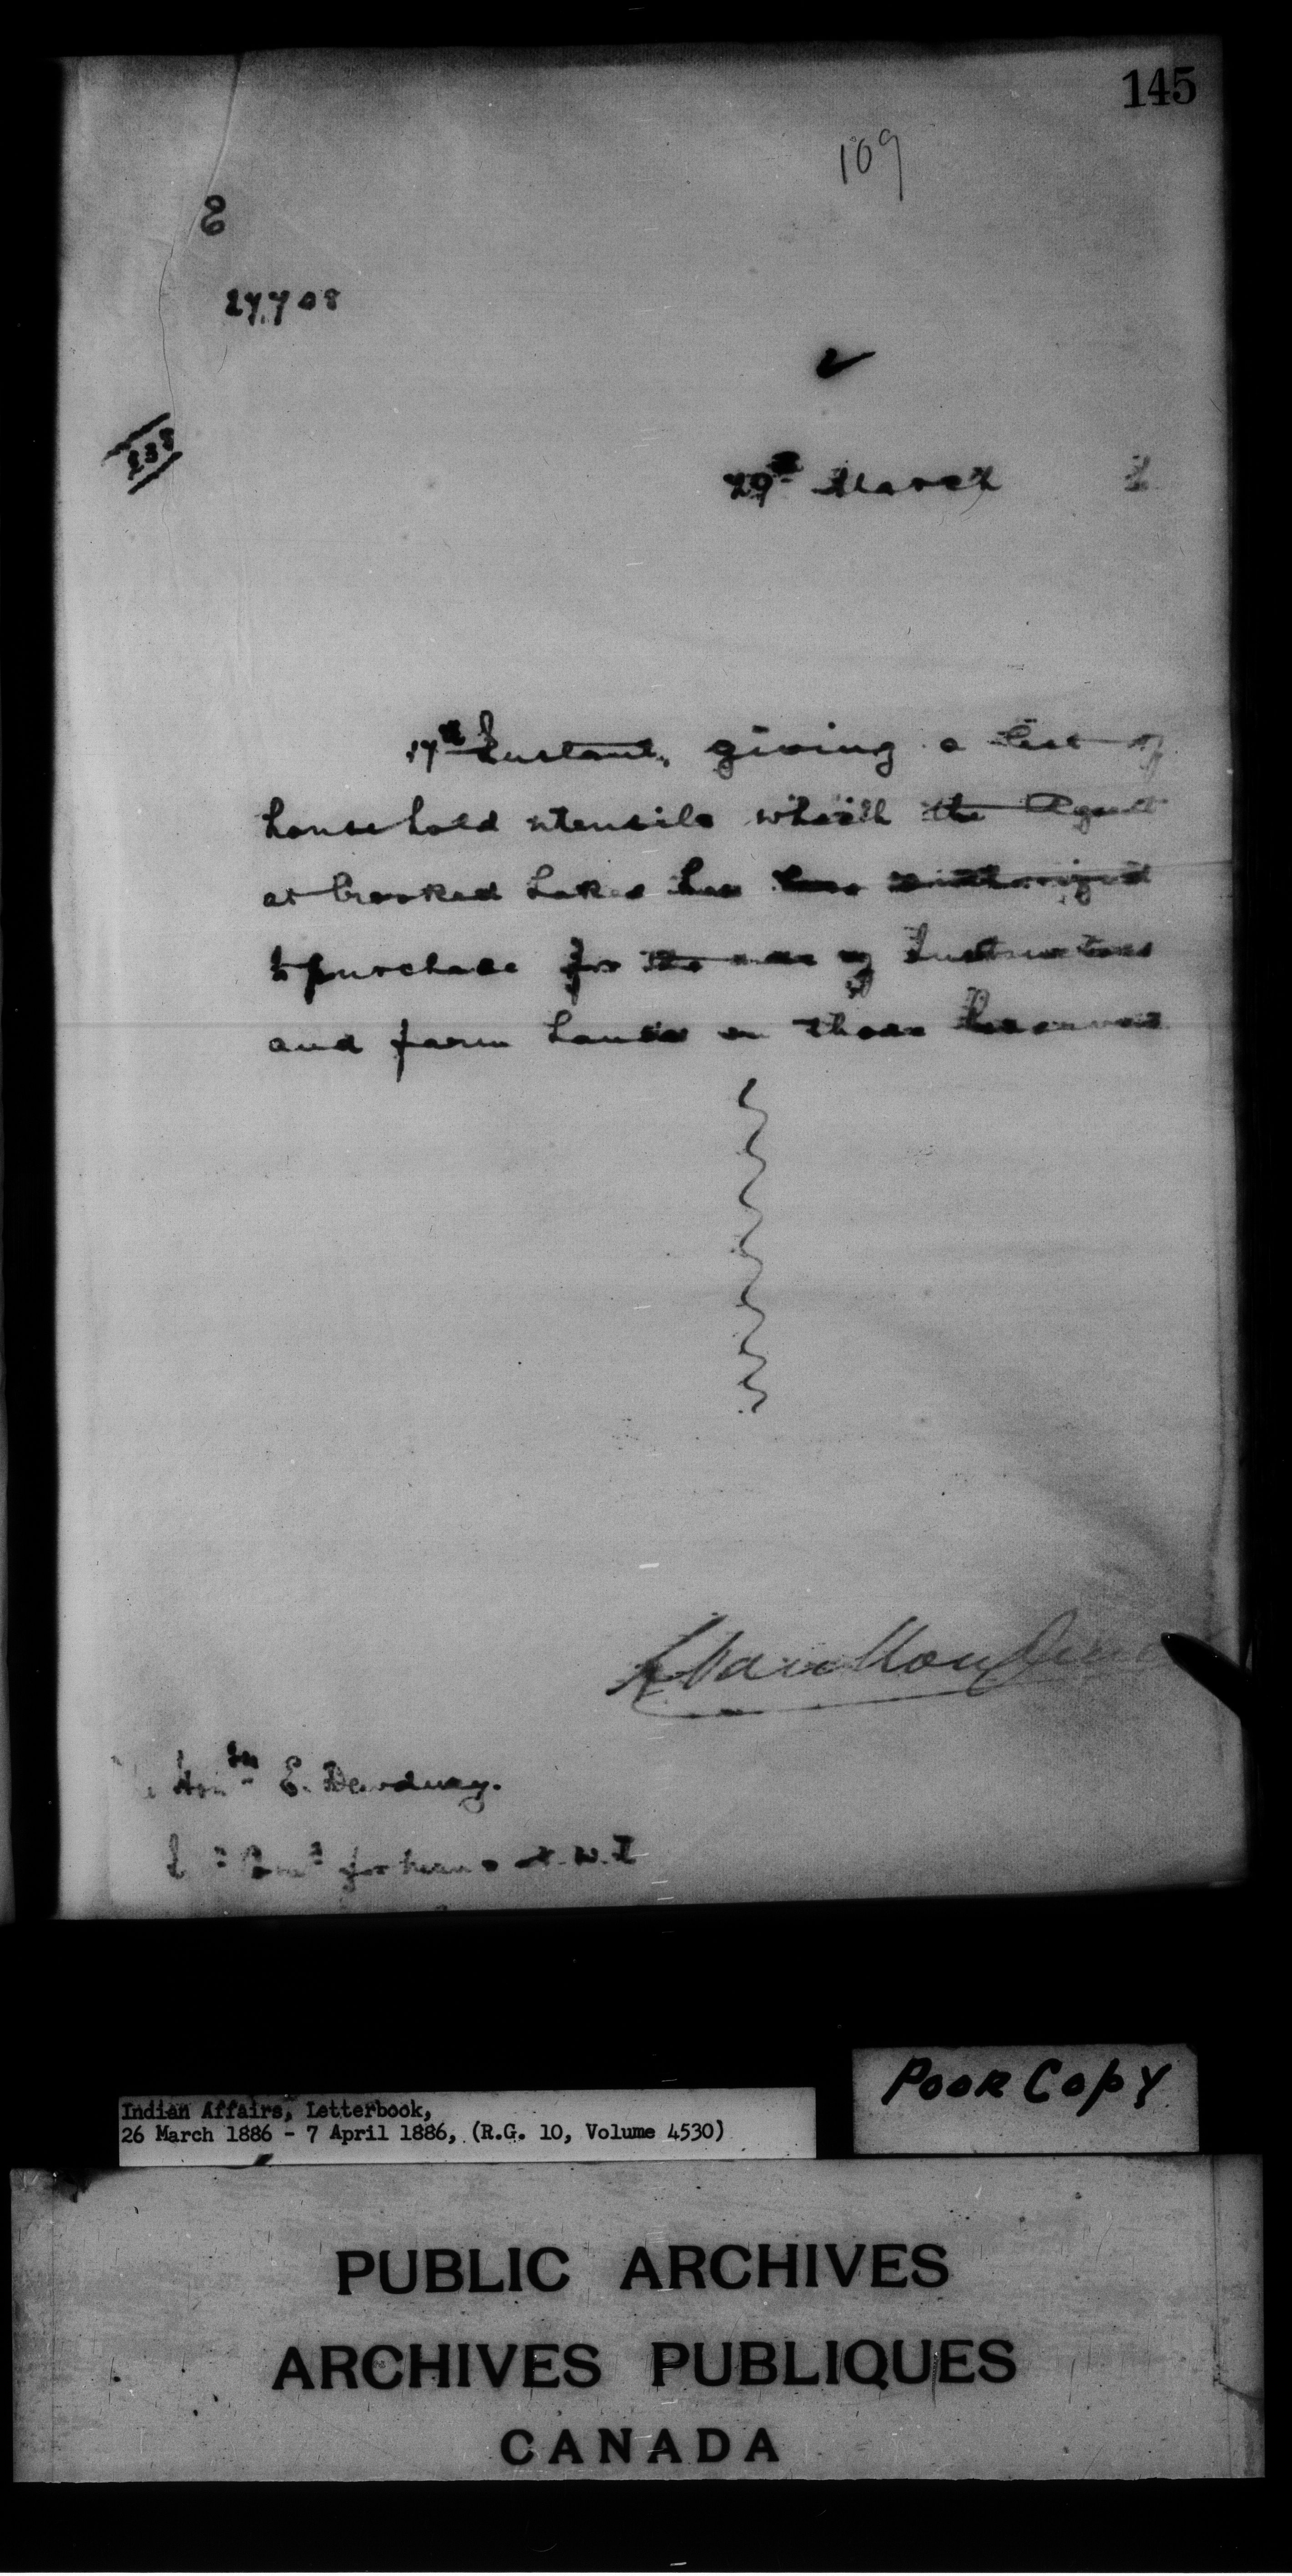 145
109
27,708
29th March
17th Instant, giving a list of
household utensils which the Agent
at Crooked Lakes has been authorized
to purchase for the use of Instructors
and farm hands on those Reserves
L. VanKoughnet
Honble E. Dewdney.
N.W.T
Poor Copy
Indian Affairs, Letterbook,
26 March 1886 - 7 April 1886, (R.G. 10, Volume 4530)
PUBLIC ARCHIVES
ARCHIVES PUBLIQUES
CANADA